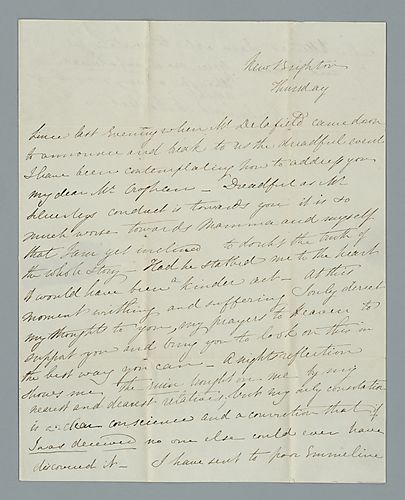 New Brighton
Thursday
Since last Evening when Mr Delafield came down
to announce and break to us the dreadful event
I have been contemplating how to address you
my dear Mr Croghan – Dreadful as Mr
Schenleys conduct is towards you it is so
much worse towards Mamma and myself
that I am yet inclined to doubt the truth of
the whole Story – Had he stabbed me to the heart
it would have been a kinder act – at this
moment writhing and suffering I only direct
my thoughts to you, my prayers to Heaven to
support you and bring you to look on this in
the best way you can – A nights reflection
shows me the ruin bought on me by my
nearest and dearest relatives, but my only consolation
is a clear conscience and a conviction that if
I was deceived no one else could ever have
discovered it – I have sent to poor Emmeline